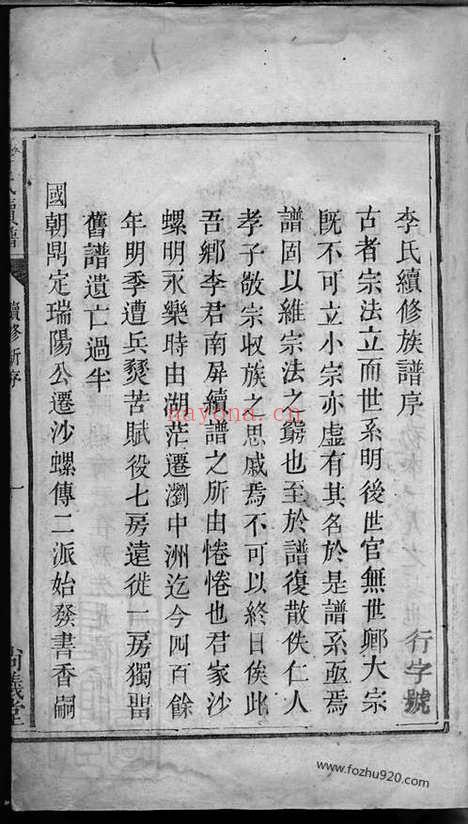 李氏續修族譜序
行字號
古者宗法立而世系明後世官無世卿大宗
既不可立小宗亦虛有其名於是譜系亟焉
譜固以維宗法之窮也至於譜復散佚仁人
孝子敬宗收族之思戚焉不可以終日俟此
吾鄉李君南屏續譜之所由惓惓也君家沙
螺明永樂時由湖茫遷瀏中洲迄今四百餘
年明季遭兵燹苦賦役七房遠徙一房獨留
舊譜遺亡過半
國朝鼎定瑞陽公遷沙螺傳二派始發書香嗣
氏續譜
續修新序
一
尚義堂
nayona.cn
www.fozhu920.com